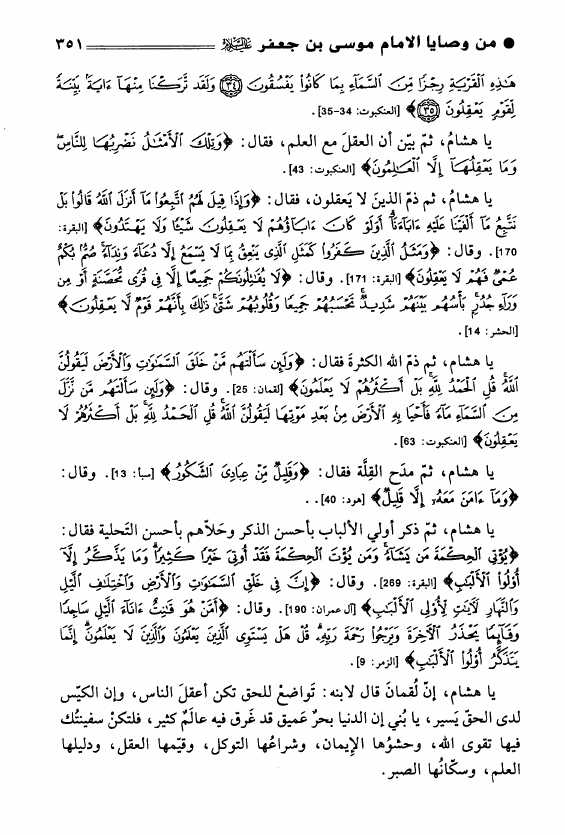 ● من وصايا الامام موسى بن جعفر عليه السلام ٣٥١
هَٰذِهِ الْقَرْيَةِ رِجْزًا مِّنَ السَّمَاءِ بِمَا كَانُوا يَفْسُقُونَ ﴿٣٤﴾ وَلَقَد تَّرَكْنَا مِنْهَا آيَةً بَيِّنَةً
لِّقَوْمٍ يَعْقِلُونَ ﴿٣٥﴾﴾ [العنكبوت: 34-35].
يا هشامُ، ثمّ بيّن أن العقلَ مع العلم، فقال: ﴿وَتِلْكَ الْأَمْثَالُ نَضْرِبُهَا لِلنَّاسِ
وَمَا يَعْقِلُهَا إِلَّا الْعَالِمُونَ﴾ [العنكبوت: 43].
يا هشامُ، ثم ذمّ الذينَ لا يَعقلون، فقال: ﴿وَإِذَا قِيلَ لَهُمُ اتَّبِعُوا مَا أَنزَلَ اللَّهُ قَالُوا بَلْ
نَتَّبِعُ مَا أَلْفَيْنَا عَلَيْهِ آبَاءَنَا أَوَلَوْ كَانَ آبَاؤُهُمْ لَا يَعْقِلُونَ شَيْئًا وَلَا يَهْتَدُونَ﴾ [البقرة:
170]. وقال: ﴿وَمَثَلُ الَّذِينَ كَفَرُوا كَمَثَلِ الَّذِي يَنْعِقُ بِمَا لَا يَسْمَعُ إِلَّا دُعَاءً وَنِدَاءً صُمٌّ بُكْمٌ
عُمْيٌ فَهُمْ لَا يَعْقِلُونَ﴾ [البقرة: 171]. وقال: ﴿لَا يُقَاتِلُونَكُمْ جَمِيعًا إِلَّا فِي قُرًى مُّحَصَّنَةٍ أَوْ مِن
وَرَاءِ جُدُرٍ بَأْسُهُم بَيْنَهُمْ شَدِيدٌ تَحْسَبُهُمْ جَمِيعًا وَقُلُوبُهُمْ شَتَّىٰ ذَٰلِكَ بِأَنَّهُمْ قَوْمٌ لَّا يَعْقِلُونَ﴾
[الحشر: 14].
يا هشام، ثم ذمّ الله الكثرةَ فقال: ﴿وَلَئِن سَأَلْتَهُم مَّنْ خَلَقَ السَّمَاوَاتِ وَالْأَرْضَ لَيَقُولُنَّ
اللَّهُ قُلِ الْحَمْدُ لِلَّهِ بَلْ أَكْثَرُهُمْ لَا يَعْلَمُونَ﴾ [لقمان: 25]. وقال: ﴿وَلَئِن سَأَلْتَهُم مَّن نَّزَّلَ
مِنَ السَّمَاءِ مَاءً فَأَحْيَا بِهِ الْأَرْضَ مِن بَعْدِ مَوْتِهَا لَيَقُولُنَّ اللَّهُ قُلِ الْحَمْدُ لِلَّهِ بَلْ أَكْثَرُهُمْ لَا
يَعْقِلُونَ﴾ [العنكبوت: 63].
يا هشام، ثمّ مدَح القِلَّة فقال: ﴿وَقَلِيلٌ مِّنْ عِبَادِيَ الشَّكُورُ﴾ [سبأ: 13]. وقال:
﴿وَمَا آمَنَ مَعَهُ إِلَّا قَلِيلٌ﴾ [هود: 40]..
يا هشام، ثمّ ذكر أولي الألباب بأحسن الذكر وحَلاّهم بأحسن التحلية فقال:
﴿يُؤْتِي الْحِكْمَةَ مَن يَشَاءُ وَمَن يُؤْتَ الْحِكْمَةَ فَقَدْ أُوتِيَ خَيْرًا كَثِيرًا وَمَا يَذَّكَّرُ إِلَّا
أُولُوا الْأَلْبَابِ﴾ [البقرة: 269]. وقال: ﴿إِنَّ فِي خَلْقِ السَّمَاوَاتِ وَالْأَرْضِ وَاخْتِلَافِ اللَّيْلِ
وَالنَّهَارِ لَآيَاتٍ لِّأُولِي الْأَلْبَابِ﴾ [آل عمران: 190]. وقال: ﴿أَمَّنْ هُوَ قَانِتٌ آنَاءَ اللَّيْلِ سَاجِدًا
وَقَائِمًا يَحْذَرُ الْآخِرَةَ وَيَرْجُوا رَحْمَةَ رَبِّهِ قُلْ هَلْ يَسْتَوِي الَّذِينَ يَعْلَمُونَ وَالَّذِينَ لَا يَعْلَمُونَ إِنَّمَا
يَتَذَكَّرُ أُولُوا الْأَلْبَابِ﴾ [الزمر: 9].
يا هشام، إنّ لُقمانَ قال لابنه: تَواضعْ للحق تكن أعقلَ الناس، وإن الكيّس
لدى الحقّ يَسير، يا بُني إن الدنيا بحرٌ عميق قد غَرق فيه عالَمٌ كثير، فلتكنْ سفينتُك
فيها تقوى الله، وحشوُها الإيمان، وشراعُها التوكل، وقيّمها العقل، ودليلها
العلم، وسكّانُها الصبر.